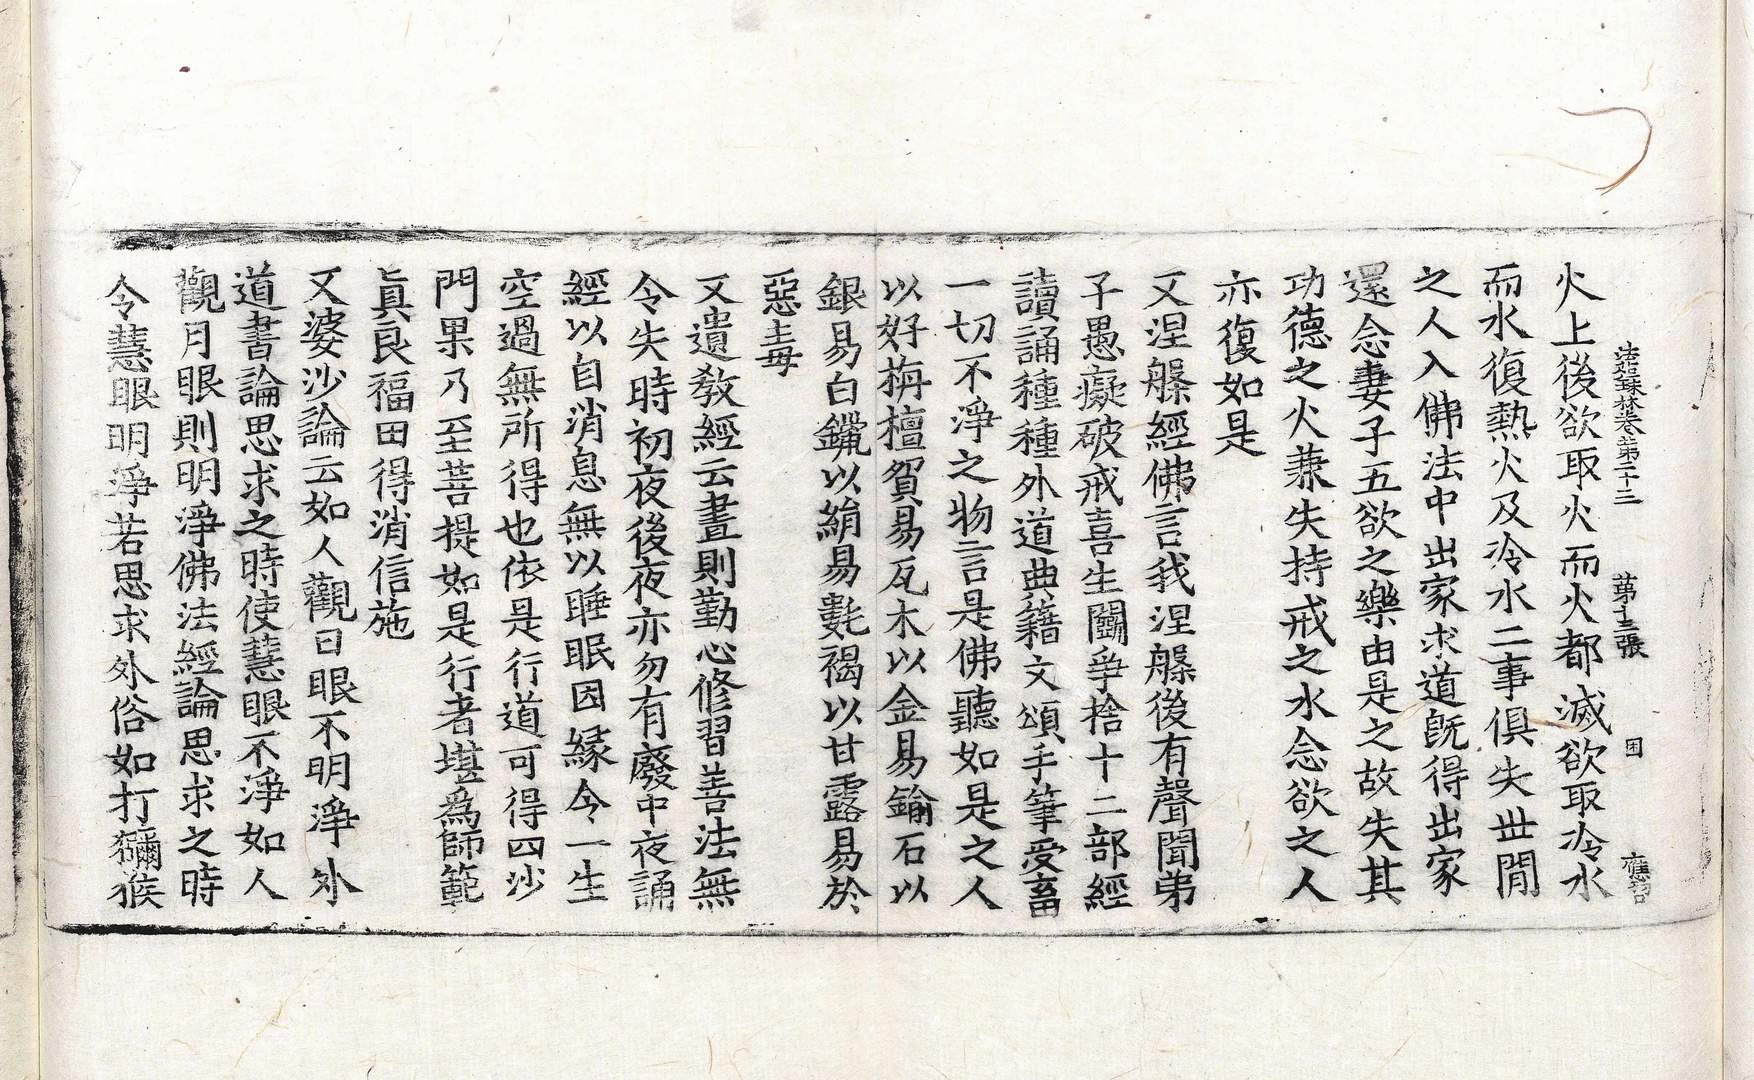 法苑珠林卷第二十三　第十三張　困　應哲
火上後欲取火而火都滅欲取冷水
而水復熱火及冷水二事俱失世閒
之人入佛法中出家求道旣得出家
還念妻子五欲之樂由是之故失其
功德之火兼失持戒之水念欲之人
亦復如是
又涅槃經佛言我涅槃後有聲聞弟
子愚癡破戒喜生鬭爭捨十二部經
讀誦種種外道典籍文頌手筆受畜
一切不淨之物言是佛聽如是之人
以好栴檀貿易瓦木以金易鍮石以
銀易白鑞以絹易㲲褐以甘露易於
惡毒
又遺教經云晝則勤心修習善法無
令失時初夜後夜亦勿有廢中夜誦
經以自消息無以睡眠因緣令一生
空過無所得也依是行道可得四沙
門果乃至菩提如是行者堪爲師範
眞良福田得消信施
又婆沙論云如人觀日眼不明淨外
道書論思求之時使慧眼不淨如人
觀月眼則明淨佛法經論思求之時
令慧眼明淨若思求外俗如打獼猴